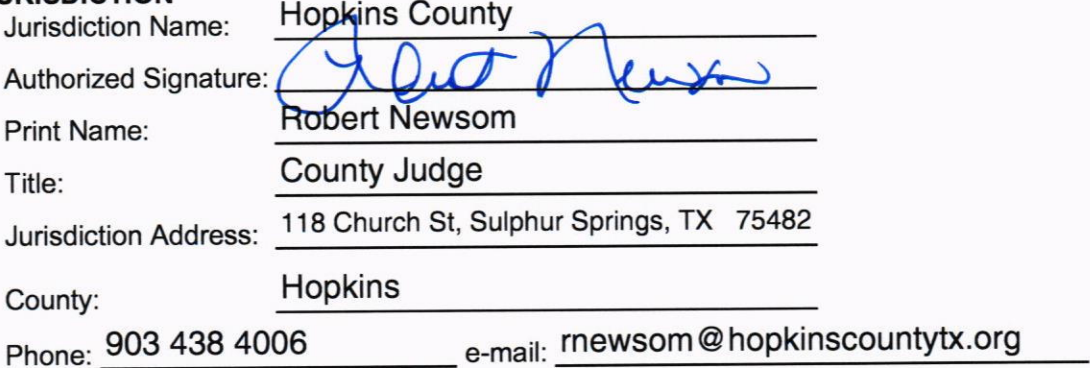 JURISDICTION
Jurisdiction Name: Hopkins County
Authorized Signature: Robert Newsom
Print Name: Robert Newsom
Title: County Judge
Jurisdiction Address: 118 Church St, Sulphur Springs, TX 75482
County: Hopkins
Phone: 903 438 4006 e-mail: rnewsom@hopkinscountytx.org